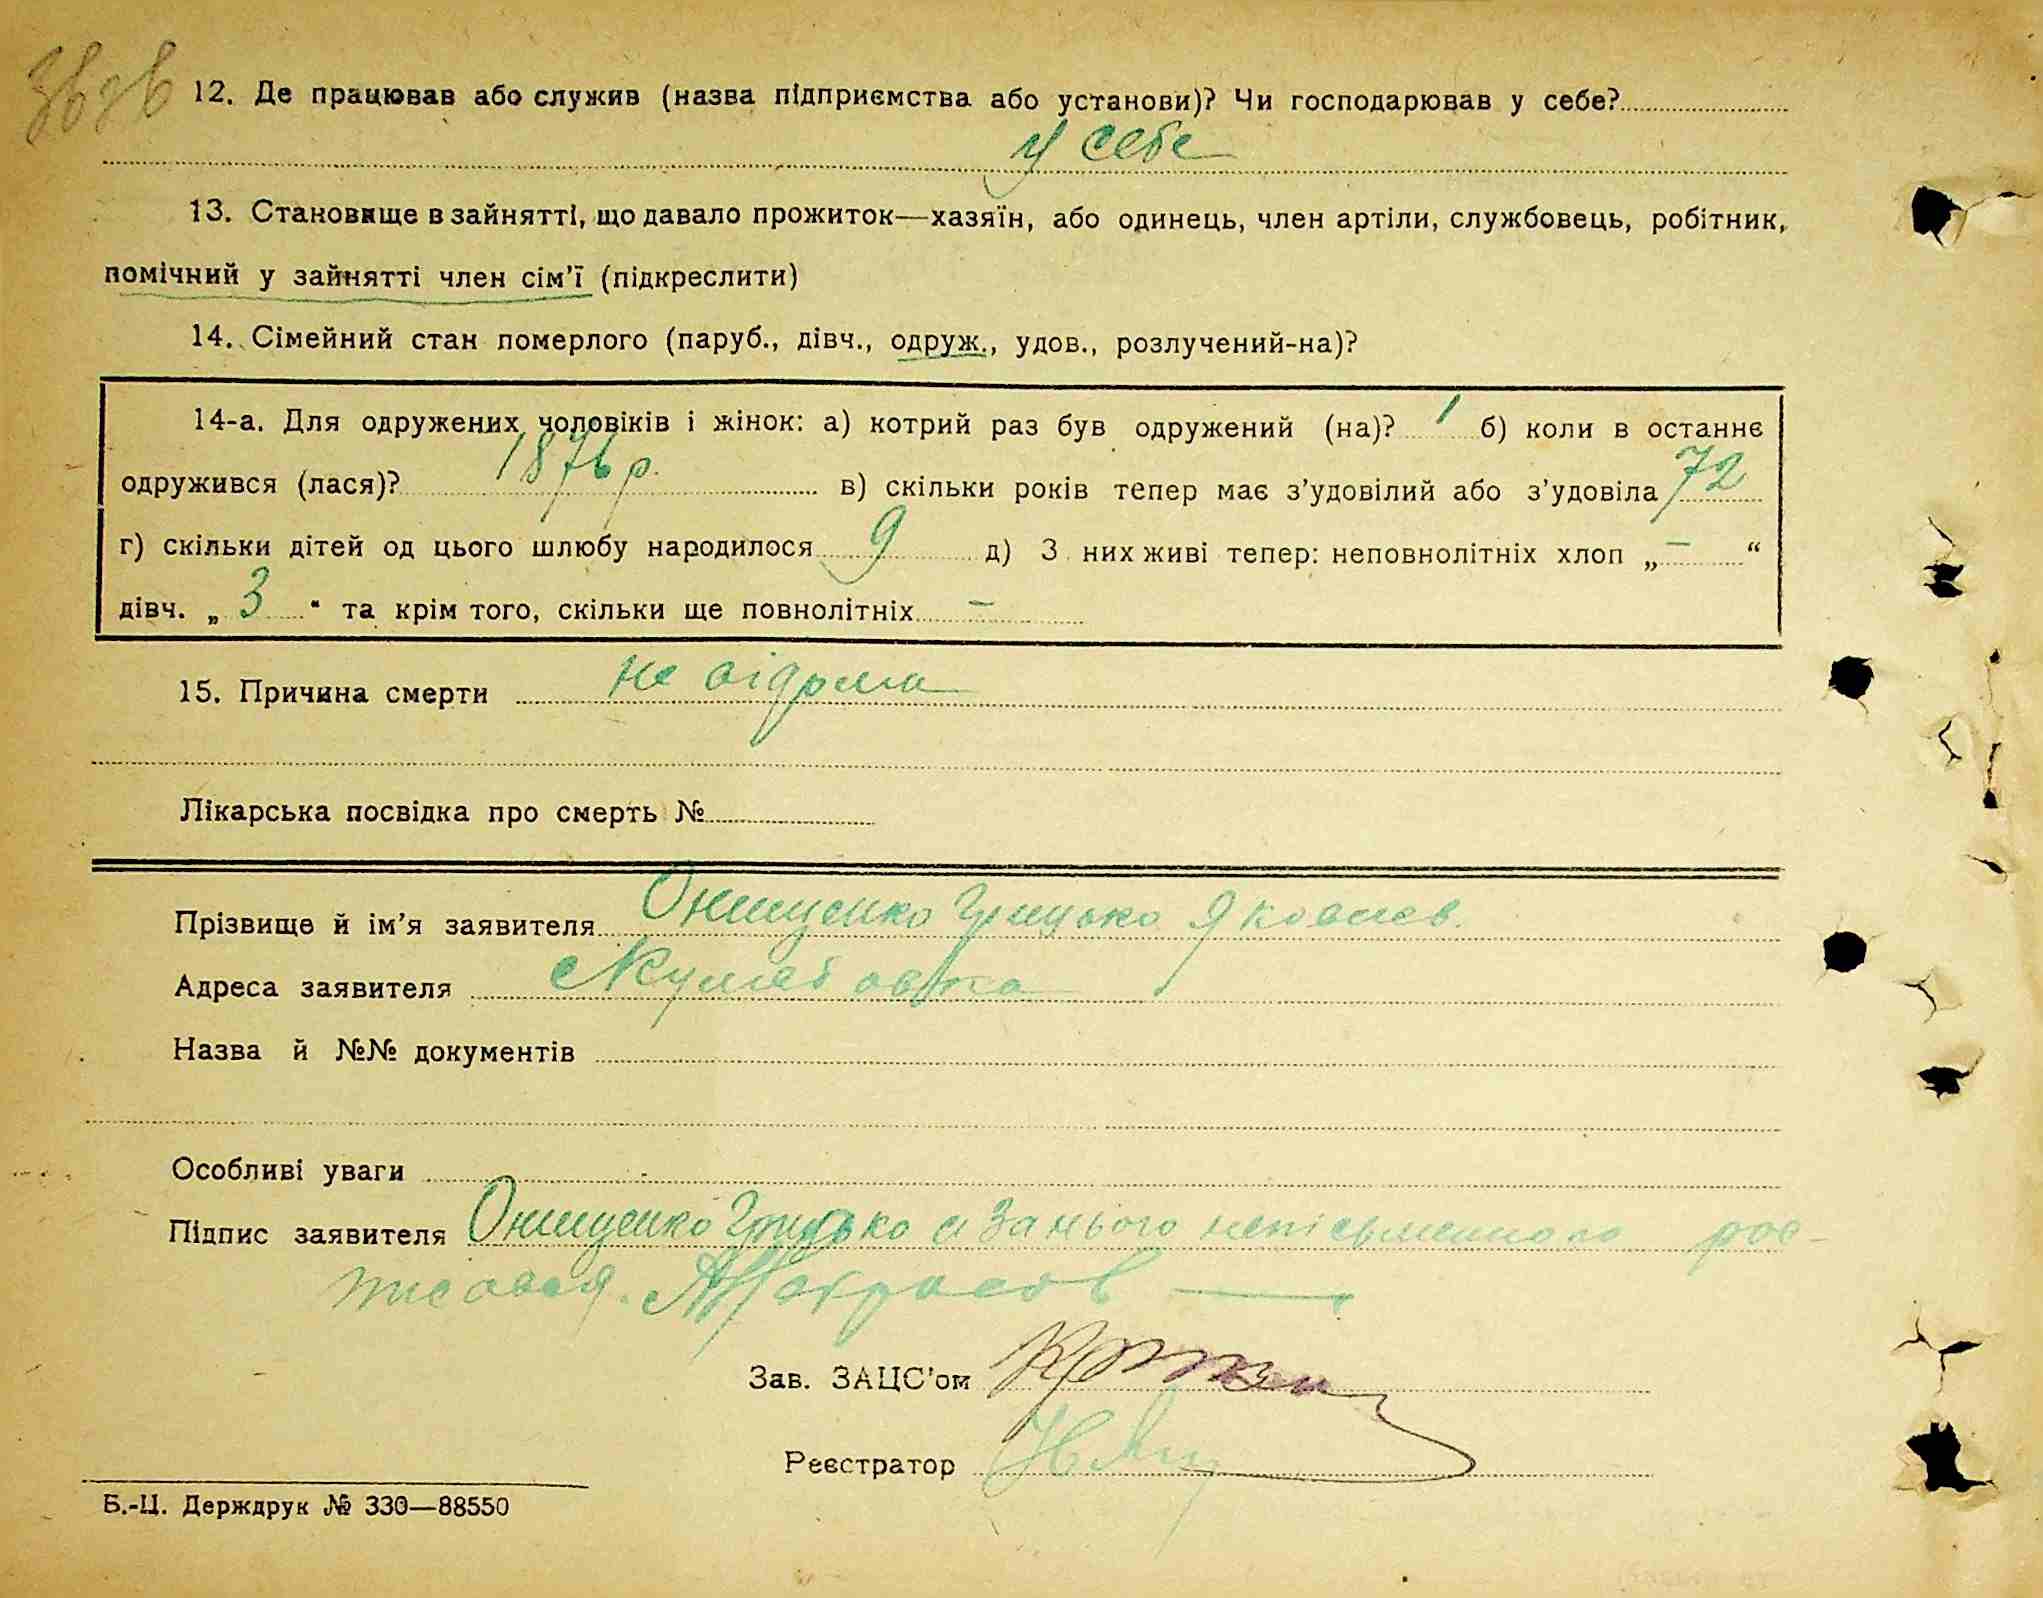 12. Де працював або служив (назва підприємства або установи)? Чи господарював у себе?
у себе
13. Становище в зайнятті, що давало прожиток—хазяїн, або одинець, член артіли, службовець, робітник,
помічний у зайнятті член сім'ї (підкреслити)
14. Сімейний стан померлого (паруб., дівч., одруж., удов., розлучений-на)?
14-а. Для одружених чоловіків і жінок: а) котрий раз був одружений (на)? 1 б) коли в останнє
одружився (лася)? 1876 р. в) скільки років тепер має з'удовілий або з'удовіла 72
г) скільки дітей од цього шлюбу народилося 9 д) З них живі тепер: неповнолітніх хлоп „ — “
дівч. „ 3 “ та крім того, скільки ще повнолітніх —
15. Причина смерти не відома
Лікарська посвідка про смерть №
Прізвище й ім'я заявителя Онищенко Грицько Яковлев.
Адреса заявителя
Назва й №№ документів
Особливі уваги
Підпис заявителя Онищенко Грицько а за нього неписьменного рос-
писався.
Зав. ЗАЦС'ом
Реєстратор
Б.-Ц. Держдрук № 330—88550